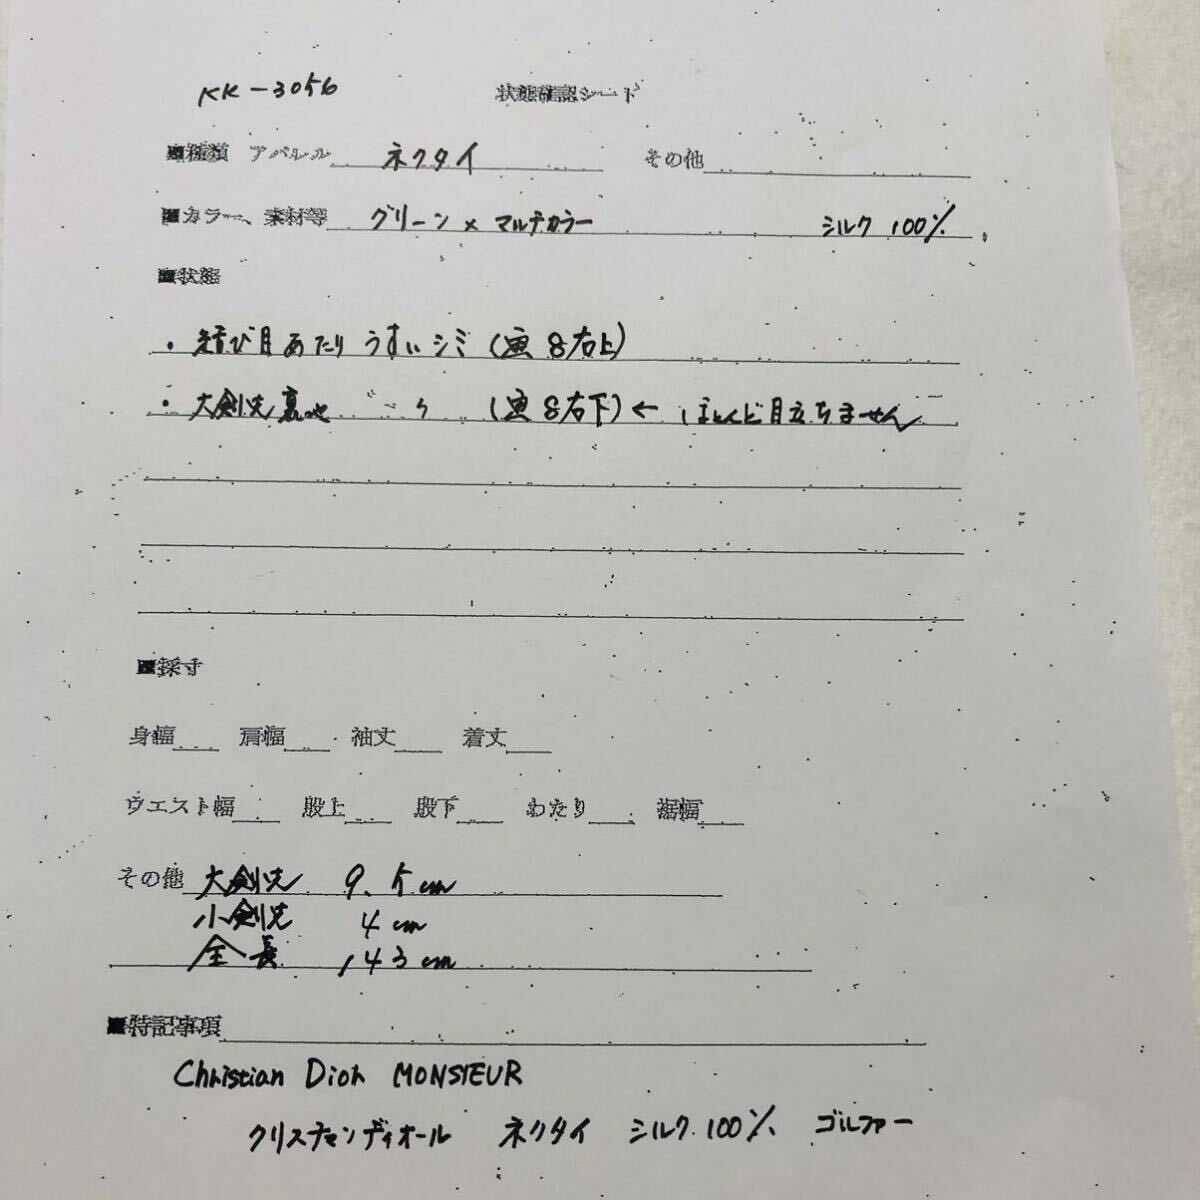 KK-3056 状態確認シート
■種類 アパレル ネクタイ その他
■カラー、素材等 グリーン×マルチカラー シルク 100%
■状態
・結び目あたり うすいシミ (画8右上)
・大剣先裏 〃 (画8右下) ← ほとんど目立ちません
■採寸
身幅 肩幅 袖丈 着丈
ウエスト幅 股上 股下 わたり 裾幅
その他 大剣先 9.5cm
小剣先 4cm
全長 143cm
■特記事項
Christian Dior MONSIEUR
クリスチャンディオール ネクタイ シルク100% ゴルファー